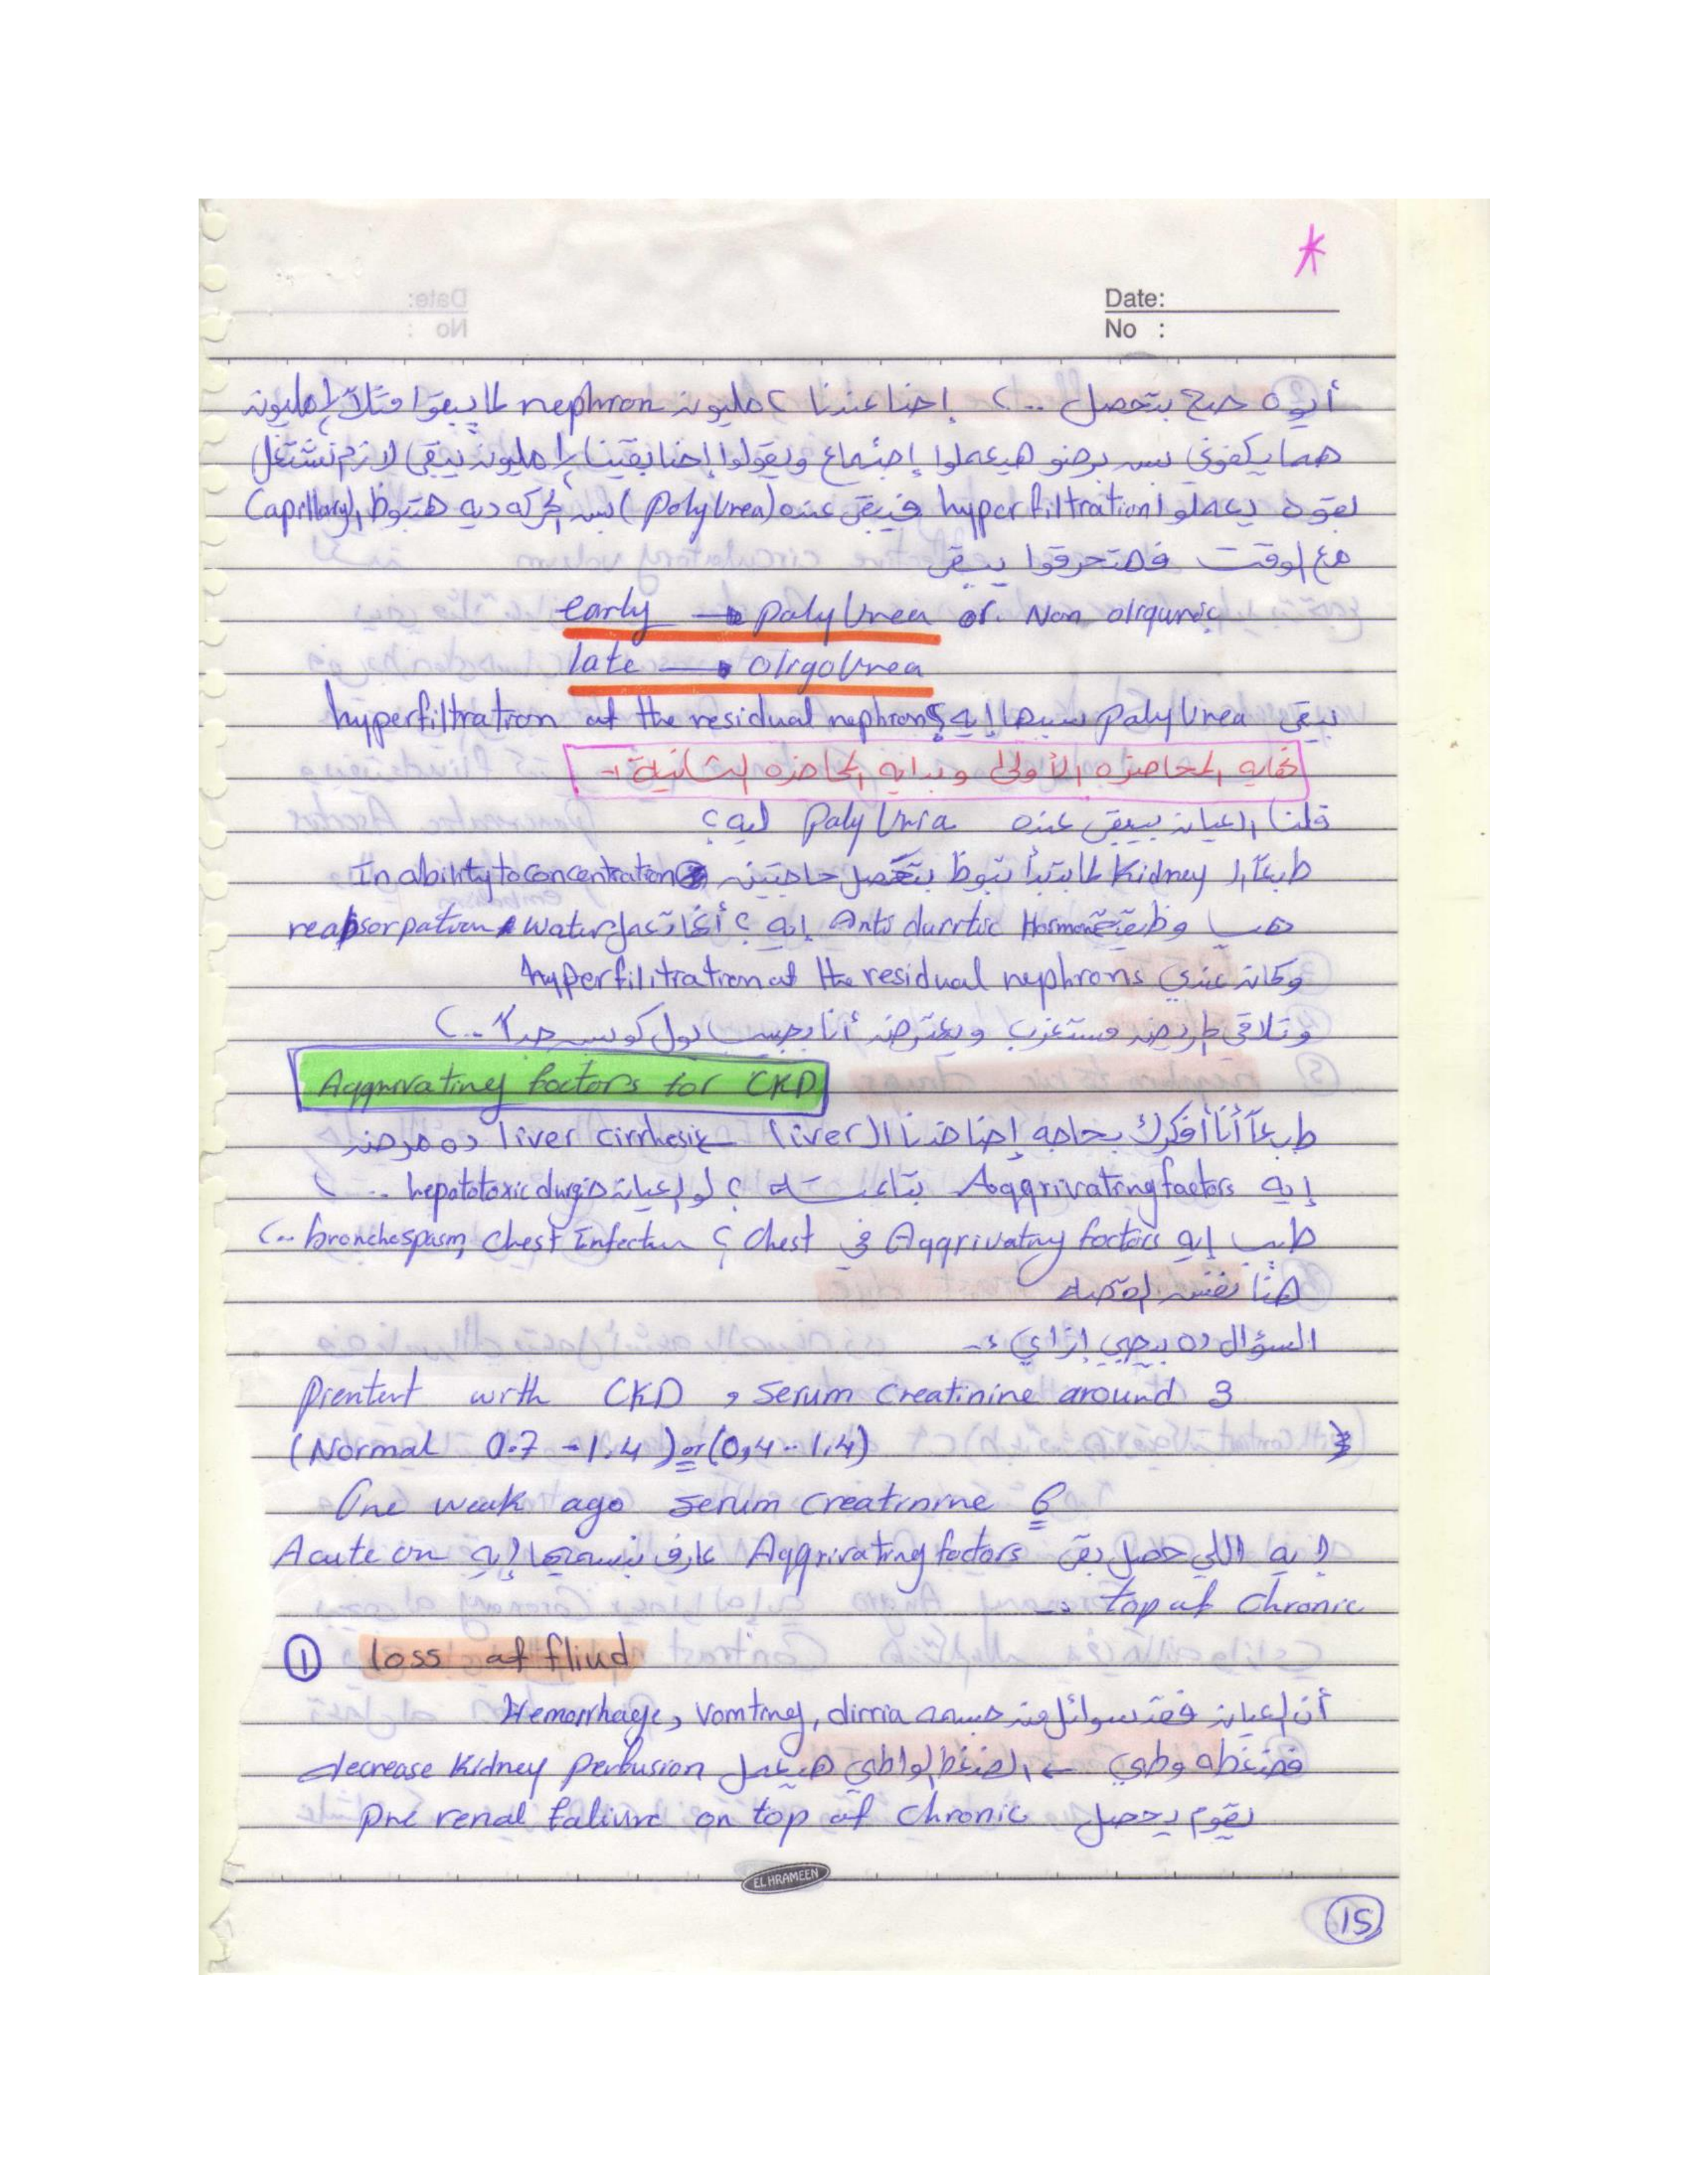 *
Date:
No :
أيوه صح بتحصل ..؟ إحنا عندنا ٢ مليون nephron لما يبقوا مثلاً ١ مليون
هما يكفوني بس برضو هيعملوا إجتماع ويقولوا إحنا بقينا ١ مليون يبقى لازم نشتغل
بقوة يعملوا hyper filtration فيبقى عنده (poly Urea) بس الحركه ديه هتبوظ الـ Capillary
مع الوقت فهتحرقوا يبقى
early → poly Urea or Non oligureic
late → oligo Urea
يبقى poly Urea سببها إيه؟ hyperfiltration at the residual nephrons
نهايه المحاضره الأولى وبدايه المحاضره الثانية :-
قلنا العيان بيبقى عنده poly Uria ليه؟
طبعاً الـ Kidney لما بتبدأ تبوظ بتحصل حاجتين In ability to concentration
هب وظيفة Anti diurtic Hormone إيه ؟ أنها تعمل water reabsorpation
وكان عندي hyper filitration at the residual nephrons
وتلاقي المريض مستغرب ويعترض أنا بجيب بول كويس جداً ..؟
Aggrivating factors for CKD
طبعاً أنا أفكرك بحاجه إحنا خدنا الـ (liver) liver cirrhosis ده مرض
إيه Aggrivating factors بتاعته ؟ لو العيان خد hepatotoxic durgs ..
طب إيه Aggrivating factors في Chest ؟ Chest Infection, bronchospasm ..؟
هنا نفس القصه
السؤال ده بيجي إزاي :-
pientent with CKD , Serum Creatinine around 3
(Normal 0.7 - 1.4) or (0,4 .. 1.4)
One weak ago serum creatinine 6
إيه اللي حصل بقى Aggrivating factors عارف بنسميها إيه Acute on
top of chronic
① loss of fliud
أن العيان فقد سوائل من جسمه Hemorrhage, vomting, dirria
فضغطه وطي ← الضغط الواطي هيعمل decrease Kidney perfusion
يقوم يحصل pre renal faliure on top of chronic
EL HRAMEEN
15